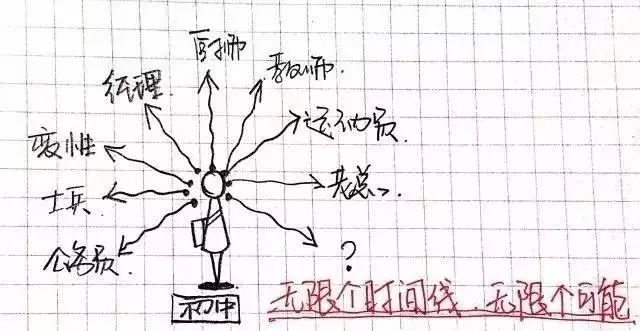 医师
教师
经理
运动员
变性
老总
士兵
公务员
?
初中
无限个时间线.无限个可能